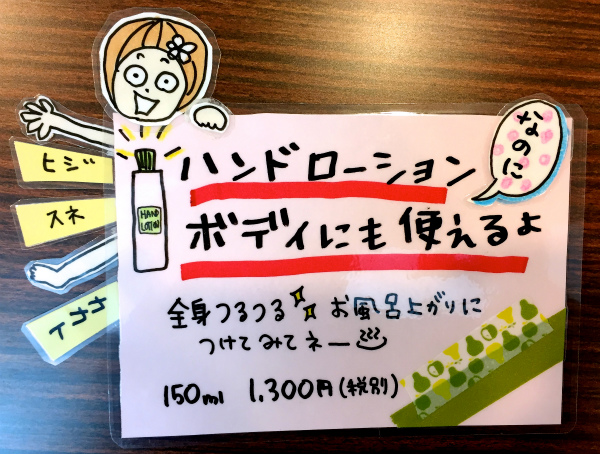 なのに
ヒジ
スネ
カカト
HAND
LOTION
ハンドローション
ボディにも使えるよ
全身つるつる お風呂上がりに
つけてみてネー
150ml 1,300円(税別)